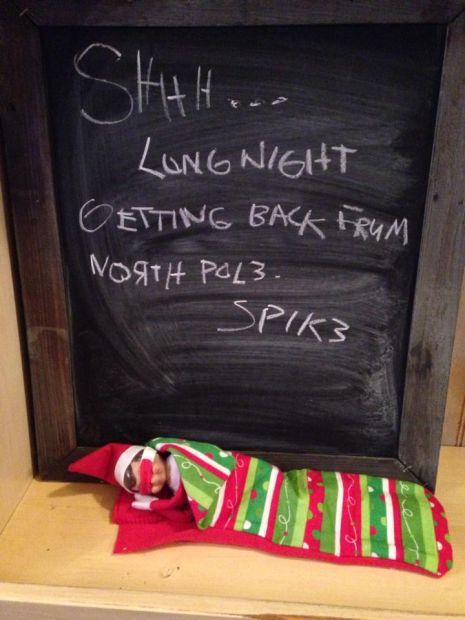 SHHH...
LUNG NIGHT
GETTING BACK FRUM
NOЯTH POL3.
SPIK3